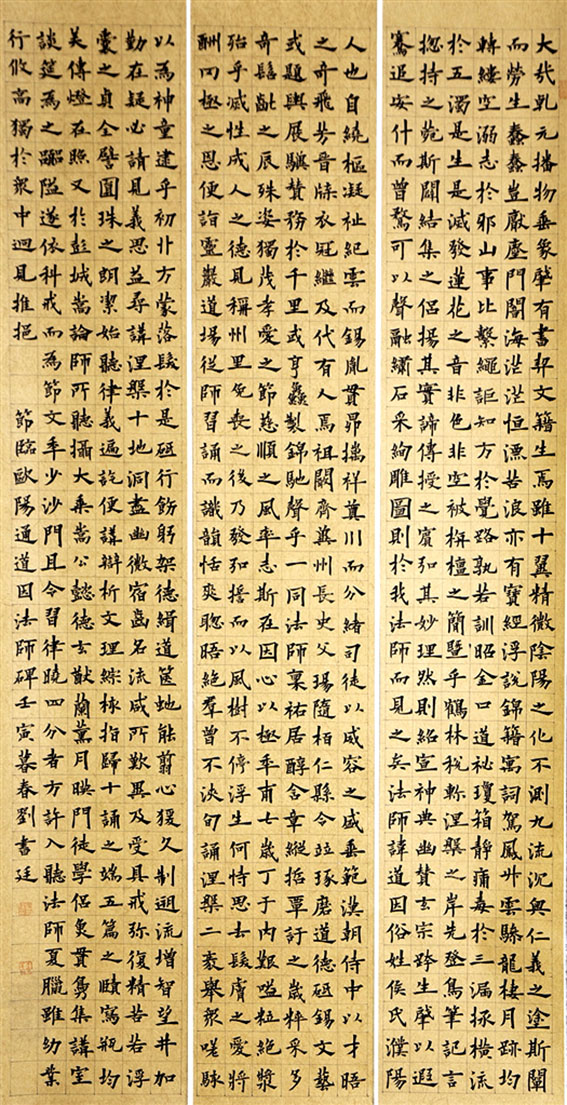 大哉乹元播物垂象肇有書契文籍生焉雖十翼精微陰陽之化不測九流沉奧仁義之塗斯闡
而勞生蠢蠢豈厭塵門閻海茫茫恒漂苦浪亦有寶經浮說錦籍寓詞駕鳳升雲驂龍棲月跡均
轉縷空溺志於邪山事比繫繩詎知方於覺路孰若訓昭金口道祕瓊箱靜痛毒於三漏拯橫流
於五濁是生是滅發蓮花之音非色非空被栴檀之簡暨乎鶴林稅軫涅槃之岸先登鳥筆記言
揔持之菀斯闢結集之侶揚其實諦傳授之賓和其妙理然則紹宣神典幽贊玄宗跨生肇以遐
騫追安什而曾騖可以聲融繡石采絢雕圖則於我法師而見之矣法師諱道因俗姓侯氏濮陽
人也自繞樞凝祉紀雲而錫胤貫昴摛祥奠川而分緒司徒以威容之盛垂範漢朝侍中以才晤
之奇飛芳晉牒衣冠繼及代有人焉祖闕齊冀州長史父瑒隨栢仁縣令竝琢磨道德砥錫文藝
或題輿展驥贊務於千里或亨鱻製錦馳聲乎一同法師稟祐居醇含章縱哲覃訏之歲粹采多
奇髫齔之辰殊姿獨茂孝愛之節慈順之風率志斯在因心以極年甫七歲丁于內艱嗌粒絕漿
殆乎滅性成人之德見稱州里免喪之後乃發弘誓而以風樹不停浮生何恃思去髮膚之愛將
酬冈極之恩便詣靈巖道場從師習誦而識韻恬爽聰晤絕羣曾不浹旬誦涅槃二袠舉眾嗟駭
以為神童逮乎初丱方蒙落髮於是砥行飭躬架德緝道篋虵能翦心猨久制遡流增智望井加
勤在疑必請見義思益尋講涅槃十地洞盡幽微宿齒名流咸所歎異及受具戒弥復精苦若浮
囊之貞全譬圓珠之朗潔始聽律義遍訖便講辯析文理綜核指歸十誦之端五篇之賾寫瓶均
美傳燈在照又於彭城嵩論師所聽攝大乘嵩公懿德玄猷蘭薰月暎門徒學侶魚貫鳧集講室
談筵為之嚻隘遂依科戒而為節文年少沙門且令習律曉四分者方許入聽法師夏臘雖幼業
行攸高獨於眾中迥見推挹　節臨歐陽通道因法師碑壬寅暮春劉書廷